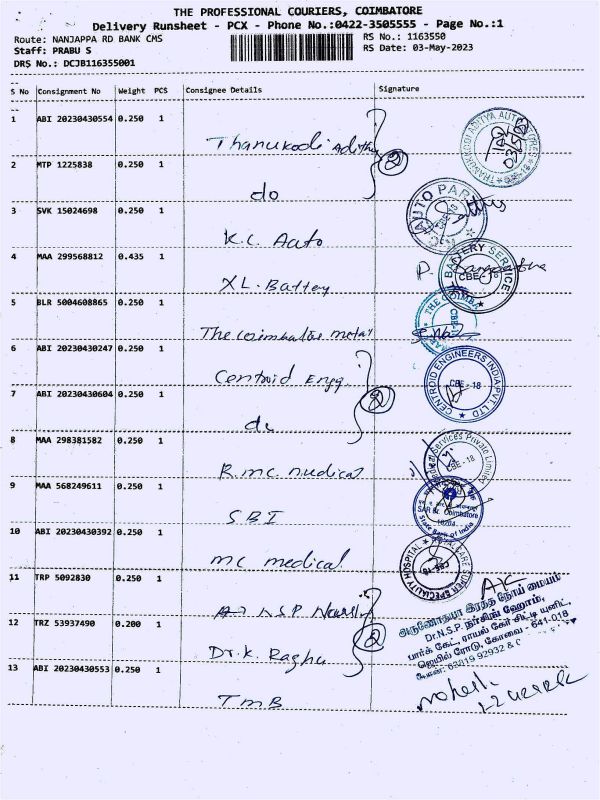 THE PROFESSIONAL COURIERS, COIMBATORE
Delivery Runsheet - PCX - Phone No.:0422-3505555 - Page No.:1
Route: NANJAPPA RD BANK CMS
RS No.: 1163550
Staff: PRABU S
RS Date: 03-May-2023
DRS No.: DCJB116355001
S No Consignment No Weight PCS Consignee Details Signature
1 ABI 20230430554 0.250 1
Thanukodi Adithya
2 MTP 1225838 0.250 1
do
3 SVK 15024698 0.250 1
K.C. Auto
4 MAA 299568812 0.435 1
XL. Battery
5 BLR 5004608865 0.250 1
The coimbatore metal
6 ABI 20230430247 0.250 1
Centroid Engg.
7 ABI 20230430604 0.250 1
do
8 MAA 298381582 0.250 1
R.mc. medical
9 MAA 568249611 0.250 1
SBI
10 ABI 20230430392 0.250 1
mc medical
11 TRP 5092830 0.250 1
N.S.P Nursing
12 TRZ 53937490 0.200 1
Dr.K. Raghu
13 ABI 20230430553 0.250 1
TMB
2
2
2
THANUKODI ADITYA AUTO
AUTO PARTS
BATTERY SERVICE
CBE-18
THE COIMBATORE
CENTROID ENGINEERS INDIA PVT LTD
CBE - 18
Services Private Limited
CBE - 18
SAR Br. Coimbatore
State Bank of India
CARE SUPER SPECIALITY HOSPITAL
அருணோதயா இரத்த நோய் மையம்
Dr.N.S.P. நர்சிங் ஹோம்,
பார்க் கேட், ராயல் கேர் சிட்டி யூனிட்,
ஜெயில் ரோடு, கோவை - 641 018